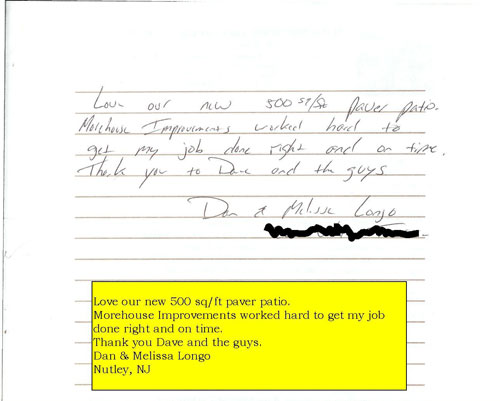 Love our new 500 sq/ft paver patio.
Morehouse Improvements worked hard to
get my job done right and on time.
Thank you to Dave and the guys
Dan & Melissa Longo
Love our new 500 sq/ft paver patio.
Morehouse Improvements worked hard to get my job
done right and on time.
Thank you Dave and the guys.
Dan & Melissa Longo
Nutley, NJ